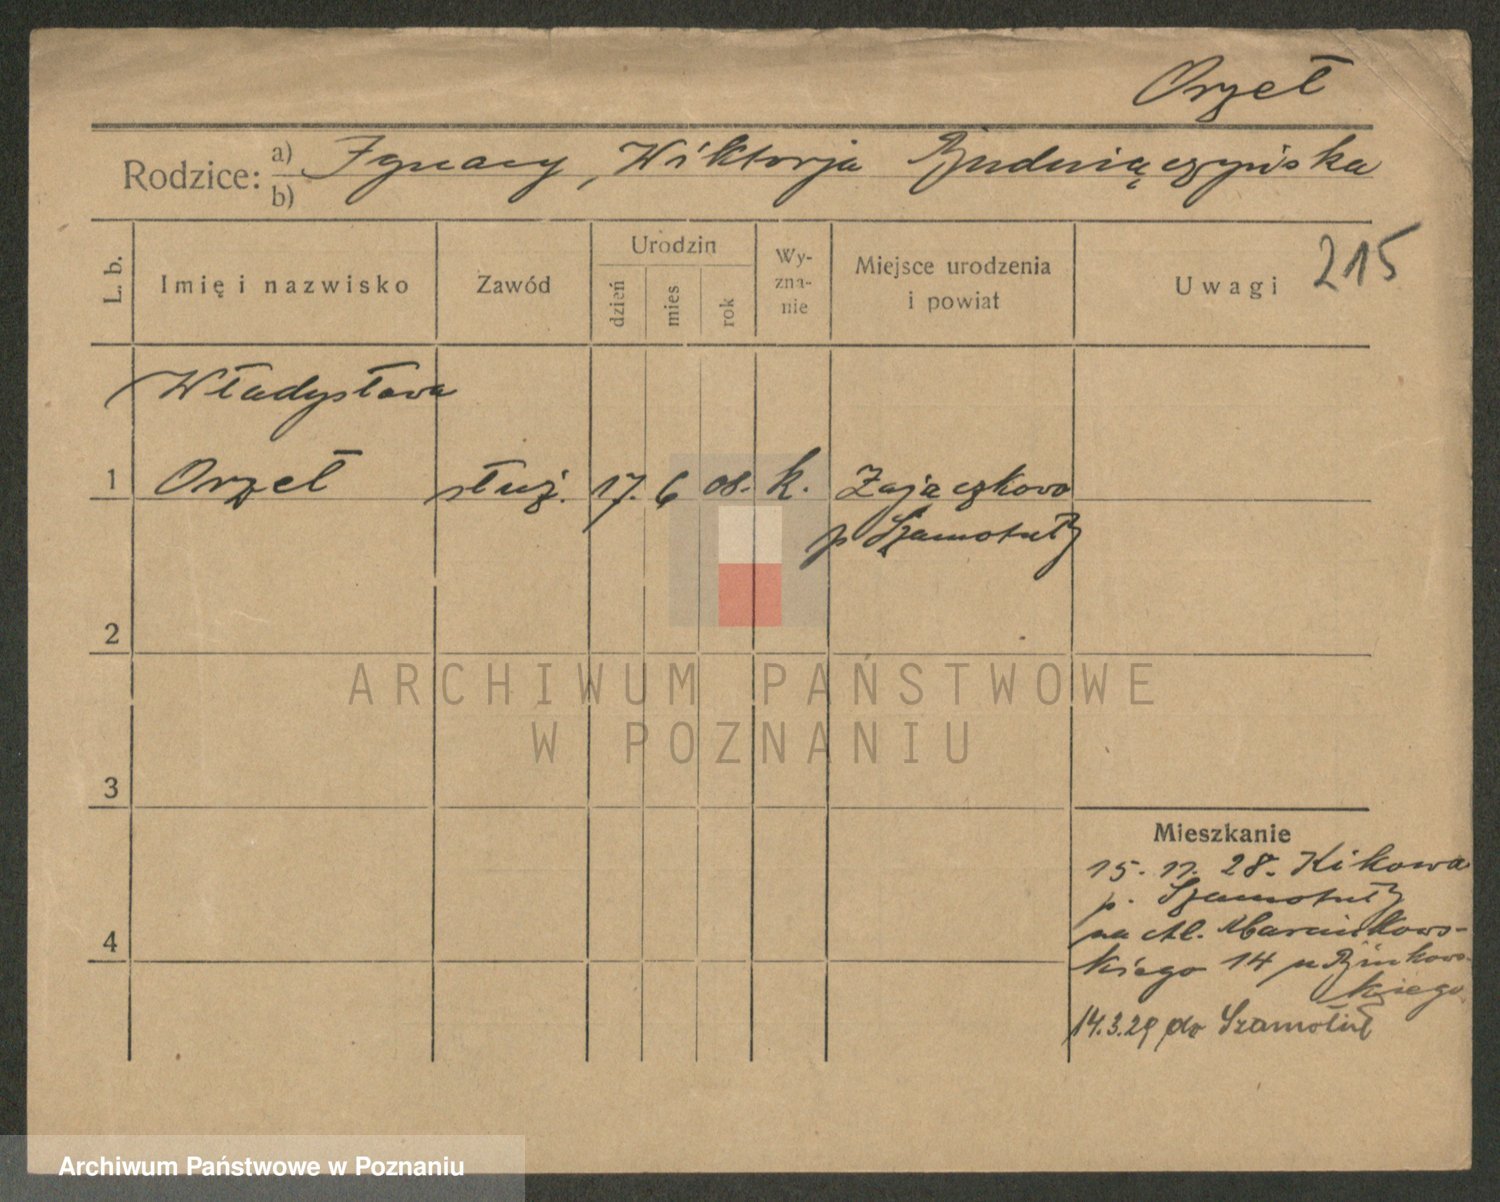 Orzeł
Rodzice: a) Ignacy, Wiktorja
b)
L. b.
Imię i nazwisko
Zawód
Urodzin
dzień
mies
rok
Wy-
zna-
nie
Miejsce urodzenia
i powiat
Uwagi
215
Władysława
1 Orzeł służ. 17. 6 08. k. Zajączkowo
p Szamotuły
2
3
4
Mieszkanie
15. 11. 28. Kikowa
p. Szamotuły
na Al. Marcinkows-
kiego 14 u
14.3.29 do Szamotuł
ARCHIWUM PAŃSTWOWE
W POZNANIU
Archiwum Państwowe w Poznaniu